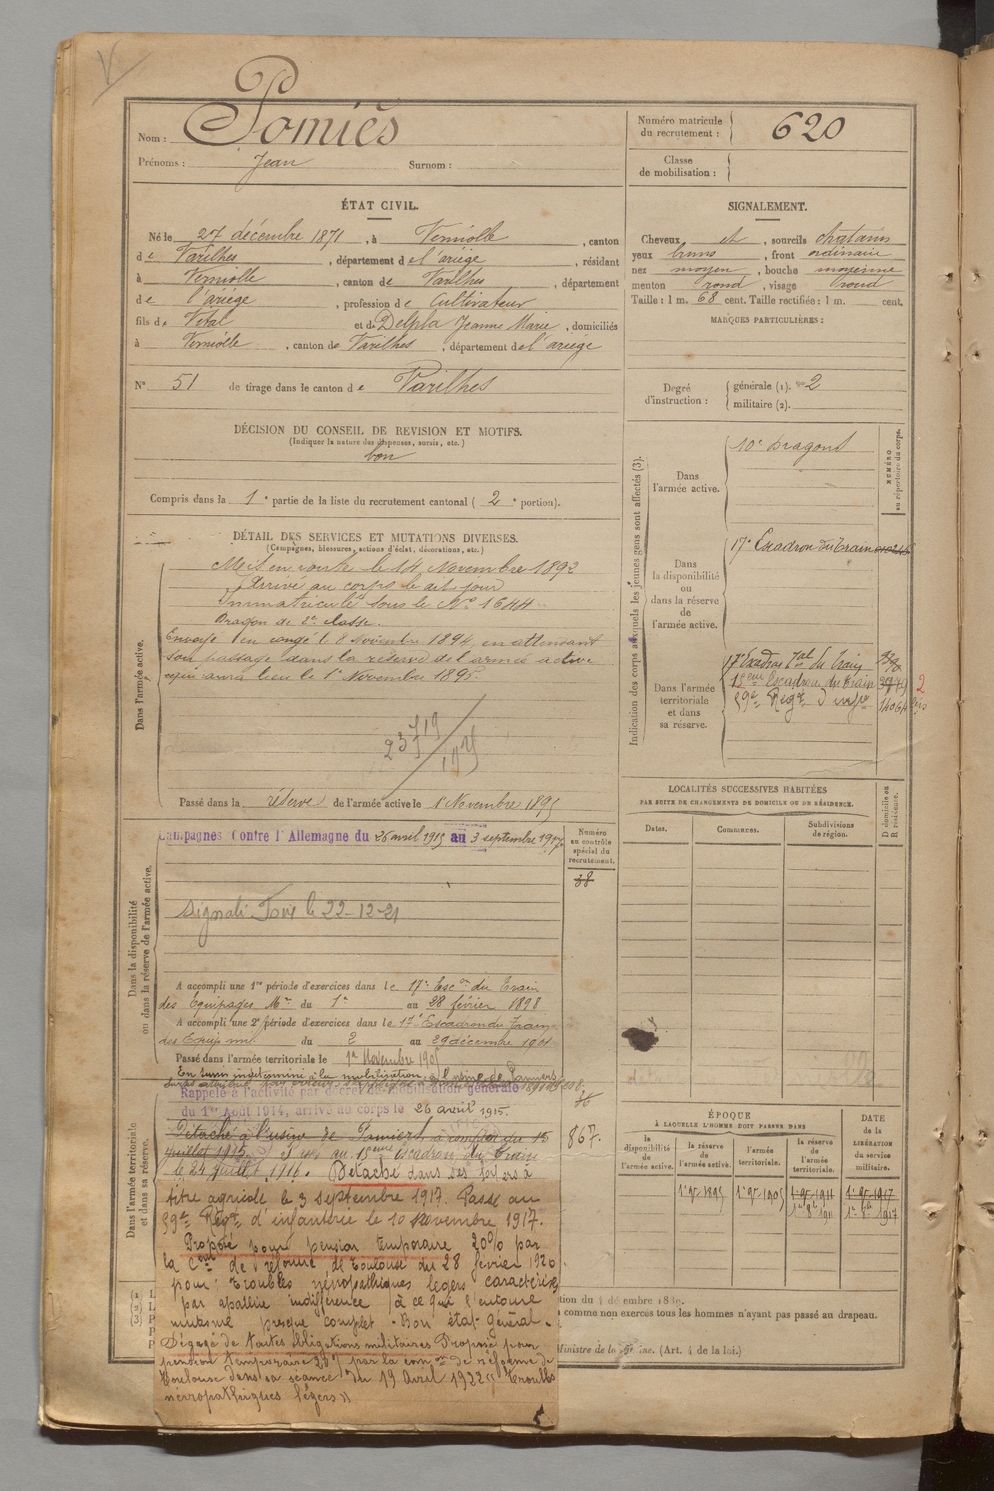 V
Nom : Pomiès
Prénoms : Jean Surnom :
Numéro matricule du recrutement : 620
Classe de mobilisation :
ÉTAT CIVIL.
Né le 27 décembre 1871, à Verniolle, canton
de Varilhes, département de l'ariège, résidant
à Verniolle, canton de Varilhes, département
de l'ariège, profession de Cultivateur
fils de Vital et de Delpla Jeanne Marie, domiciliés
à Verniolle, canton de Varilhes, département de l'ariège
N° 51 de tirage dans le canton de Varilhes
SIGNALEMENT.
Cheveux et, sourcils chatain
yeux bruns, front ordinaire
nez moyen, bouche moyenne
menton rond, visage rond
Taille : 1 m. 68 cent. Taille rectifiée : 1 m. cent.
MARQUES PARTICULIÈRES :
Degré d'instruction : générale (1). 2
militaire (2).
DÉCISION DU CONSEIL DE REVISION ET MOTIFS.
(Indiquer la nature des dispenses, sursis, etc.)
bon
Compris dans la 1e partie de la liste du recrutement cantonal ( 2e portion).
DÉTAIL DES SERVICES ET MUTATIONS DIVERSES.
(Campagnes, blessures, actions d'éclat, décorations, etc.)
Dans l'armée active.
Mis en route le 14 Novembre 1892
Arrivé au corps le dit jour
Immatriculé sous le N° 1644
Dragon de 2e classe.
Envoyé en congé le 8 Novembre 1894, en attendant
son passage dans la réserve de l'armée active
qui aura lieu le 1er Novembre 1895.
Passé dans la réserve de l'armée active le 1 Novembre 1895
Indication des corps auxquels les jeunes gens sont affectés (3).
NUMÉRO au répertoire du corps.
Dans l'armée active.
10e Dragons
Dans la disponibilité ou dans la réserve de l'armée active.
17e Escadron du Train
Dans l'armée territoriale et dans sa réserve.
17e Escadron Tal du Train
15eme Escadron du Train
59e Regt d'infie
LOCALITÉS SUCCESSIVES HABITÉES
PAR SUITE DE CHANGEMENTS DE DOMICILE OU DE RÉSIDENCE.
Dates. Communes. Subdivisions de région. D domicile ou R résidence.
Dans la disponibilité ou dans la réserve de l'armée active.
Campagnes Contre l'Allemagne du 26 avril 1915 au 3 septembre 1917
Numéro au contrôle spécial du recrutement.
38
Signalé le 22-12-21
A accompli une 1re période d'exercices dans le 17e Escon du Train
des Equipages Mre du 1er au 28 février 1898
A accompli une 2e période d'exercices dans le 17e Escadron du Train
des Equip mre du 2 au 29 décembre 1901
Passé dans l'armée territoriale le 1er Novembre 1905
Dans l'armée territoriale et dans sa réserve.
Rappelé à l'activité par décret de mobilisation générale
du 1er Août 1914, arrivé au corps le 26 avril 1915.
Détaché à l'usine de Pamiers à compter du 15
juillet 1915. au 15eme Escadron du Train
le 24 juillet 1916. Détaché dans ses foyers à
titre agricole le 3 septembre 1917. Passé au
59e Regt d'infanterie le 10 Novembre 1917.
Proposé pour pension temporaire 20% par
la Con de réforme de Toulouse du 28 février 1920
pour : troubles névropathiques légers caractérisés
par apathie indifférence à ce qui l'entoure
mutisme presque complet. Bon état général.
Dégagé de toutes obligations militaires Proposé pour
pension temporaire 20% par la comon de réforme de
Toulouse dans sa séance du 19 Avril 1922 "Troubles
névropathiques légers"
ÉPOQUE
À LAQUELLE L'HOMME DOIT PASSER DANS
la disponibilité de l'armée active. la réserve de l'armée active. l'armée territoriale. la réserve de l'armée territoriale.
DATE de la LIBÉRATION du service militaire.
1er 9bre 1895 1er 9bre 1905 1er 9bre 1911 1er 9bre 1917
comme non exercés tous les hommes n'ayant pas passé au drapeau.
Ministre de la Guerre. (Art. 4 de la loi.)